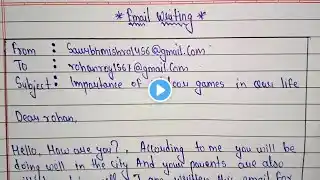 * Email Writing *
From : Saurbhmishra1456@gmail.Com
To : rohanroy1567@gmail.Com
Subject: Importance of games in our life
Dear rohan,
Hello, How are you?, According to me you will be
doing well in the city And your parents are also
this email for